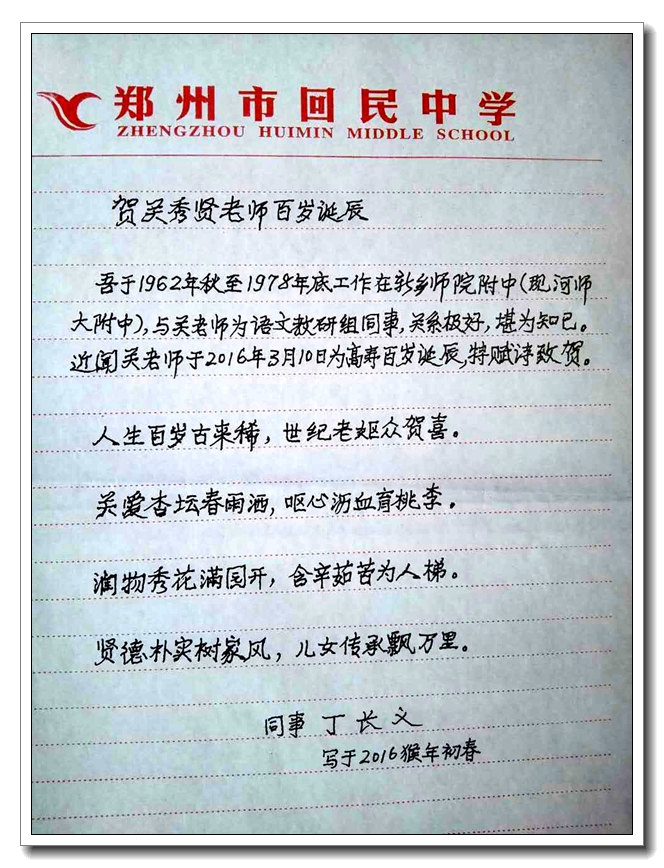 郑州市回民中学
ZHENGZHOU HUIMIN MIDDLE SCHOOL
贺关秀贤老师百岁诞辰
吾于1962年秋至1978年底工作在新乡师院附中(现河师
大附中),与关老师为语文教研组同事,关系极好,堪为知己。
近闻关老师于2016年3月10日为高寿百岁诞辰,特赋诗致贺。
人生百岁古来稀,世纪老妪众贺喜。
关爱杏坛春雨洒,呕心沥血育桃李。
润物秀花满园开,含辛茹苦为人梯。
贤德朴实树家风,儿女传承飘万里。
同事 丁长义
写于2016猴年初春